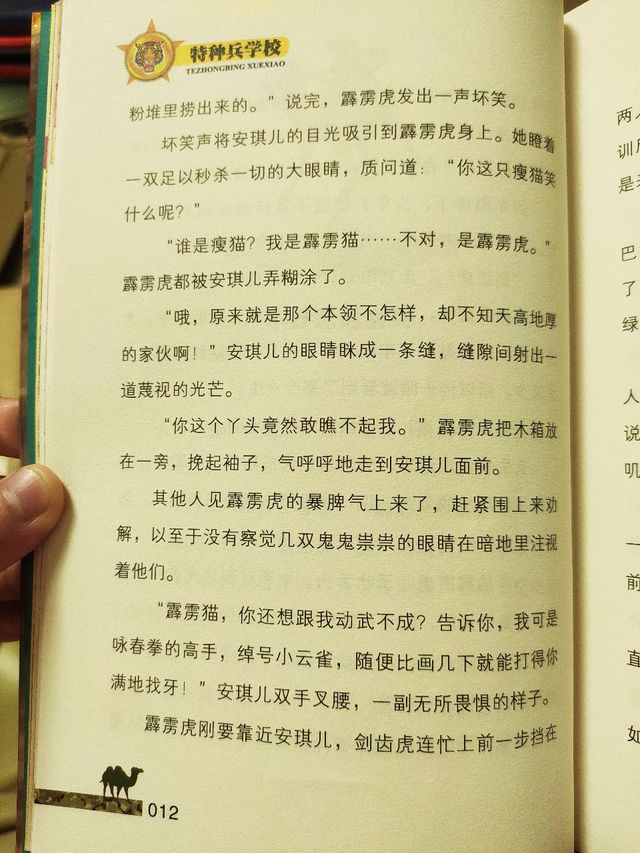 特种兵学校
TEZHONGBING XUEXIAO
粉堆里捞出来的。”说完，霹雳虎发出一声坏笑。
坏笑声将安琪儿的目光吸引到霹雳虎身上。她瞪着
一双足以秒杀一切的大眼睛，质问道：“你这只瘦猫笑
什么呢？”
“谁是瘦猫？我是霹雳猫……不对，是霹雳虎。”
霹雳虎都被安琪儿弄糊涂了。
“哦，原来就是那个本领不怎样，却不知天高地厚
的家伙啊！”安琪儿的眼睛眯成一条缝，缝隙间射出一
道蔑视的光芒。
“你这个丫头竟然敢瞧不起我。”霹雳虎把木箱放
在一旁，挽起袖子，气呼呼地走到安琪儿面前。
其他人见霹雳虎的暴脾气上来了，赶紧围上来劝
解，以至于没有察觉几双鬼鬼祟祟的眼睛在暗地里注视
着他们。
“霹雳猫，你还想跟我动武不成？告诉你，我可是
咏春拳的高手，绰号小云雀，随便比画几下就能打得你
满地找牙！”安琪儿双手叉腰，一副无所畏惧的样子。
霹雳虎刚要靠近安琪儿，剑齿虎连忙上前一步挡在
012
两
训
是
巴
了
绿
人
说
叽
一
前
直
如